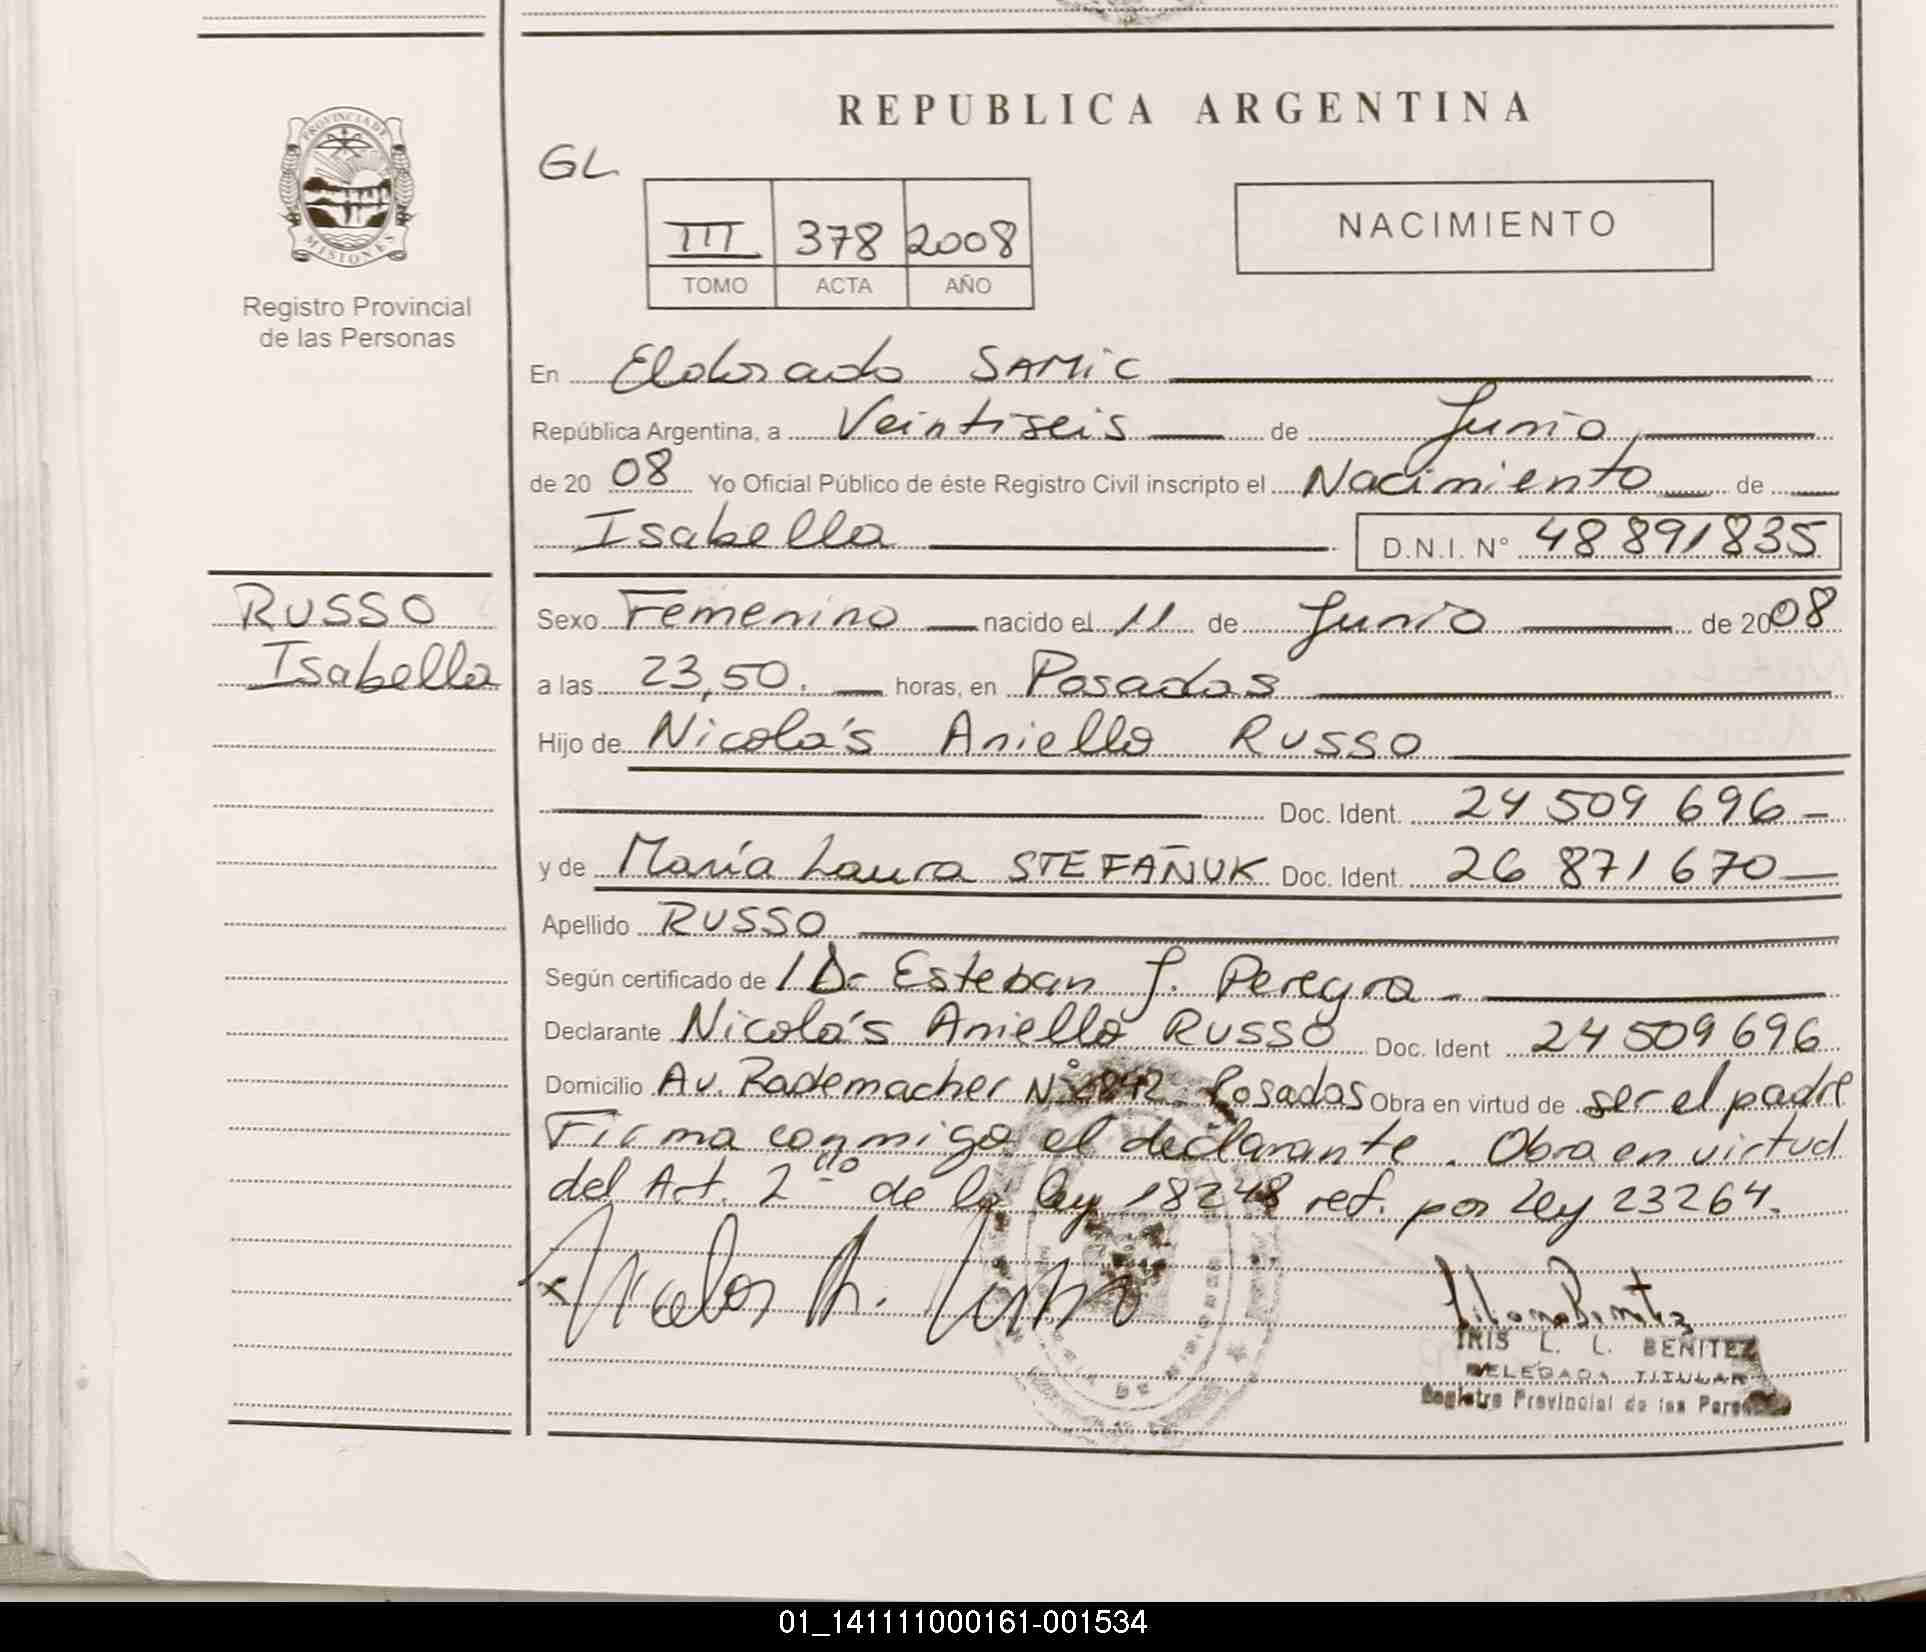 REPUBLICA ARGENTINA
PROVINCIA DE
MISIONES
Registro Provincial
de las Personas
GL
NACIMIENTO
III 378 2008
TOMO ACTA AÑO
En Eldorado SAMiC
República Argentina, a Veintiseis de Junio
de 2008 Yo Oficial Público de éste Registro Civil inscripto el Nacimiento de
Isabella D.N.I. N° 48891835
RUSSO
Isabella
Sexo Femenino nacido el 11 de Junio de 2008
a las 23,50. horas, en Posadas
Hijo de Nicolás Aniello RUSSO
Doc. Ident. 24 509 696
y de María Laura STEFAÑUK Doc. Ident. 26 871 670
Apellido RUSSO
Según certificado de / Dr Esteban J. Peregro
Declarante Nicolás Aniello RUSSO Doc. Ident 24 509 696
Domicilio Av. Rademacher N° 2842 Posadas Obra en virtud de ser el padre
Firma conmigo el declarante. Obra en virtud
del Art. 2do de la ley 18248 ref. por Ley 23264.
x Nicolas A. Russo
IRIS L. L. BENITEZ
DELEGADA TITULAR
Registro Provincial de las Personas
01_141111000161-001534